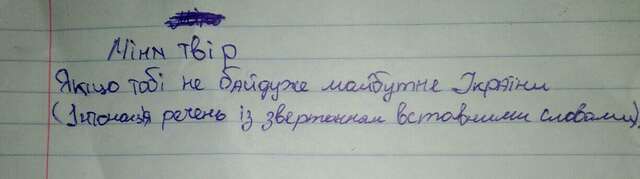 Міні твір
Якщо тобі не байдуже майбутнє України
(Інтонація речень із звертанням вставними словами)